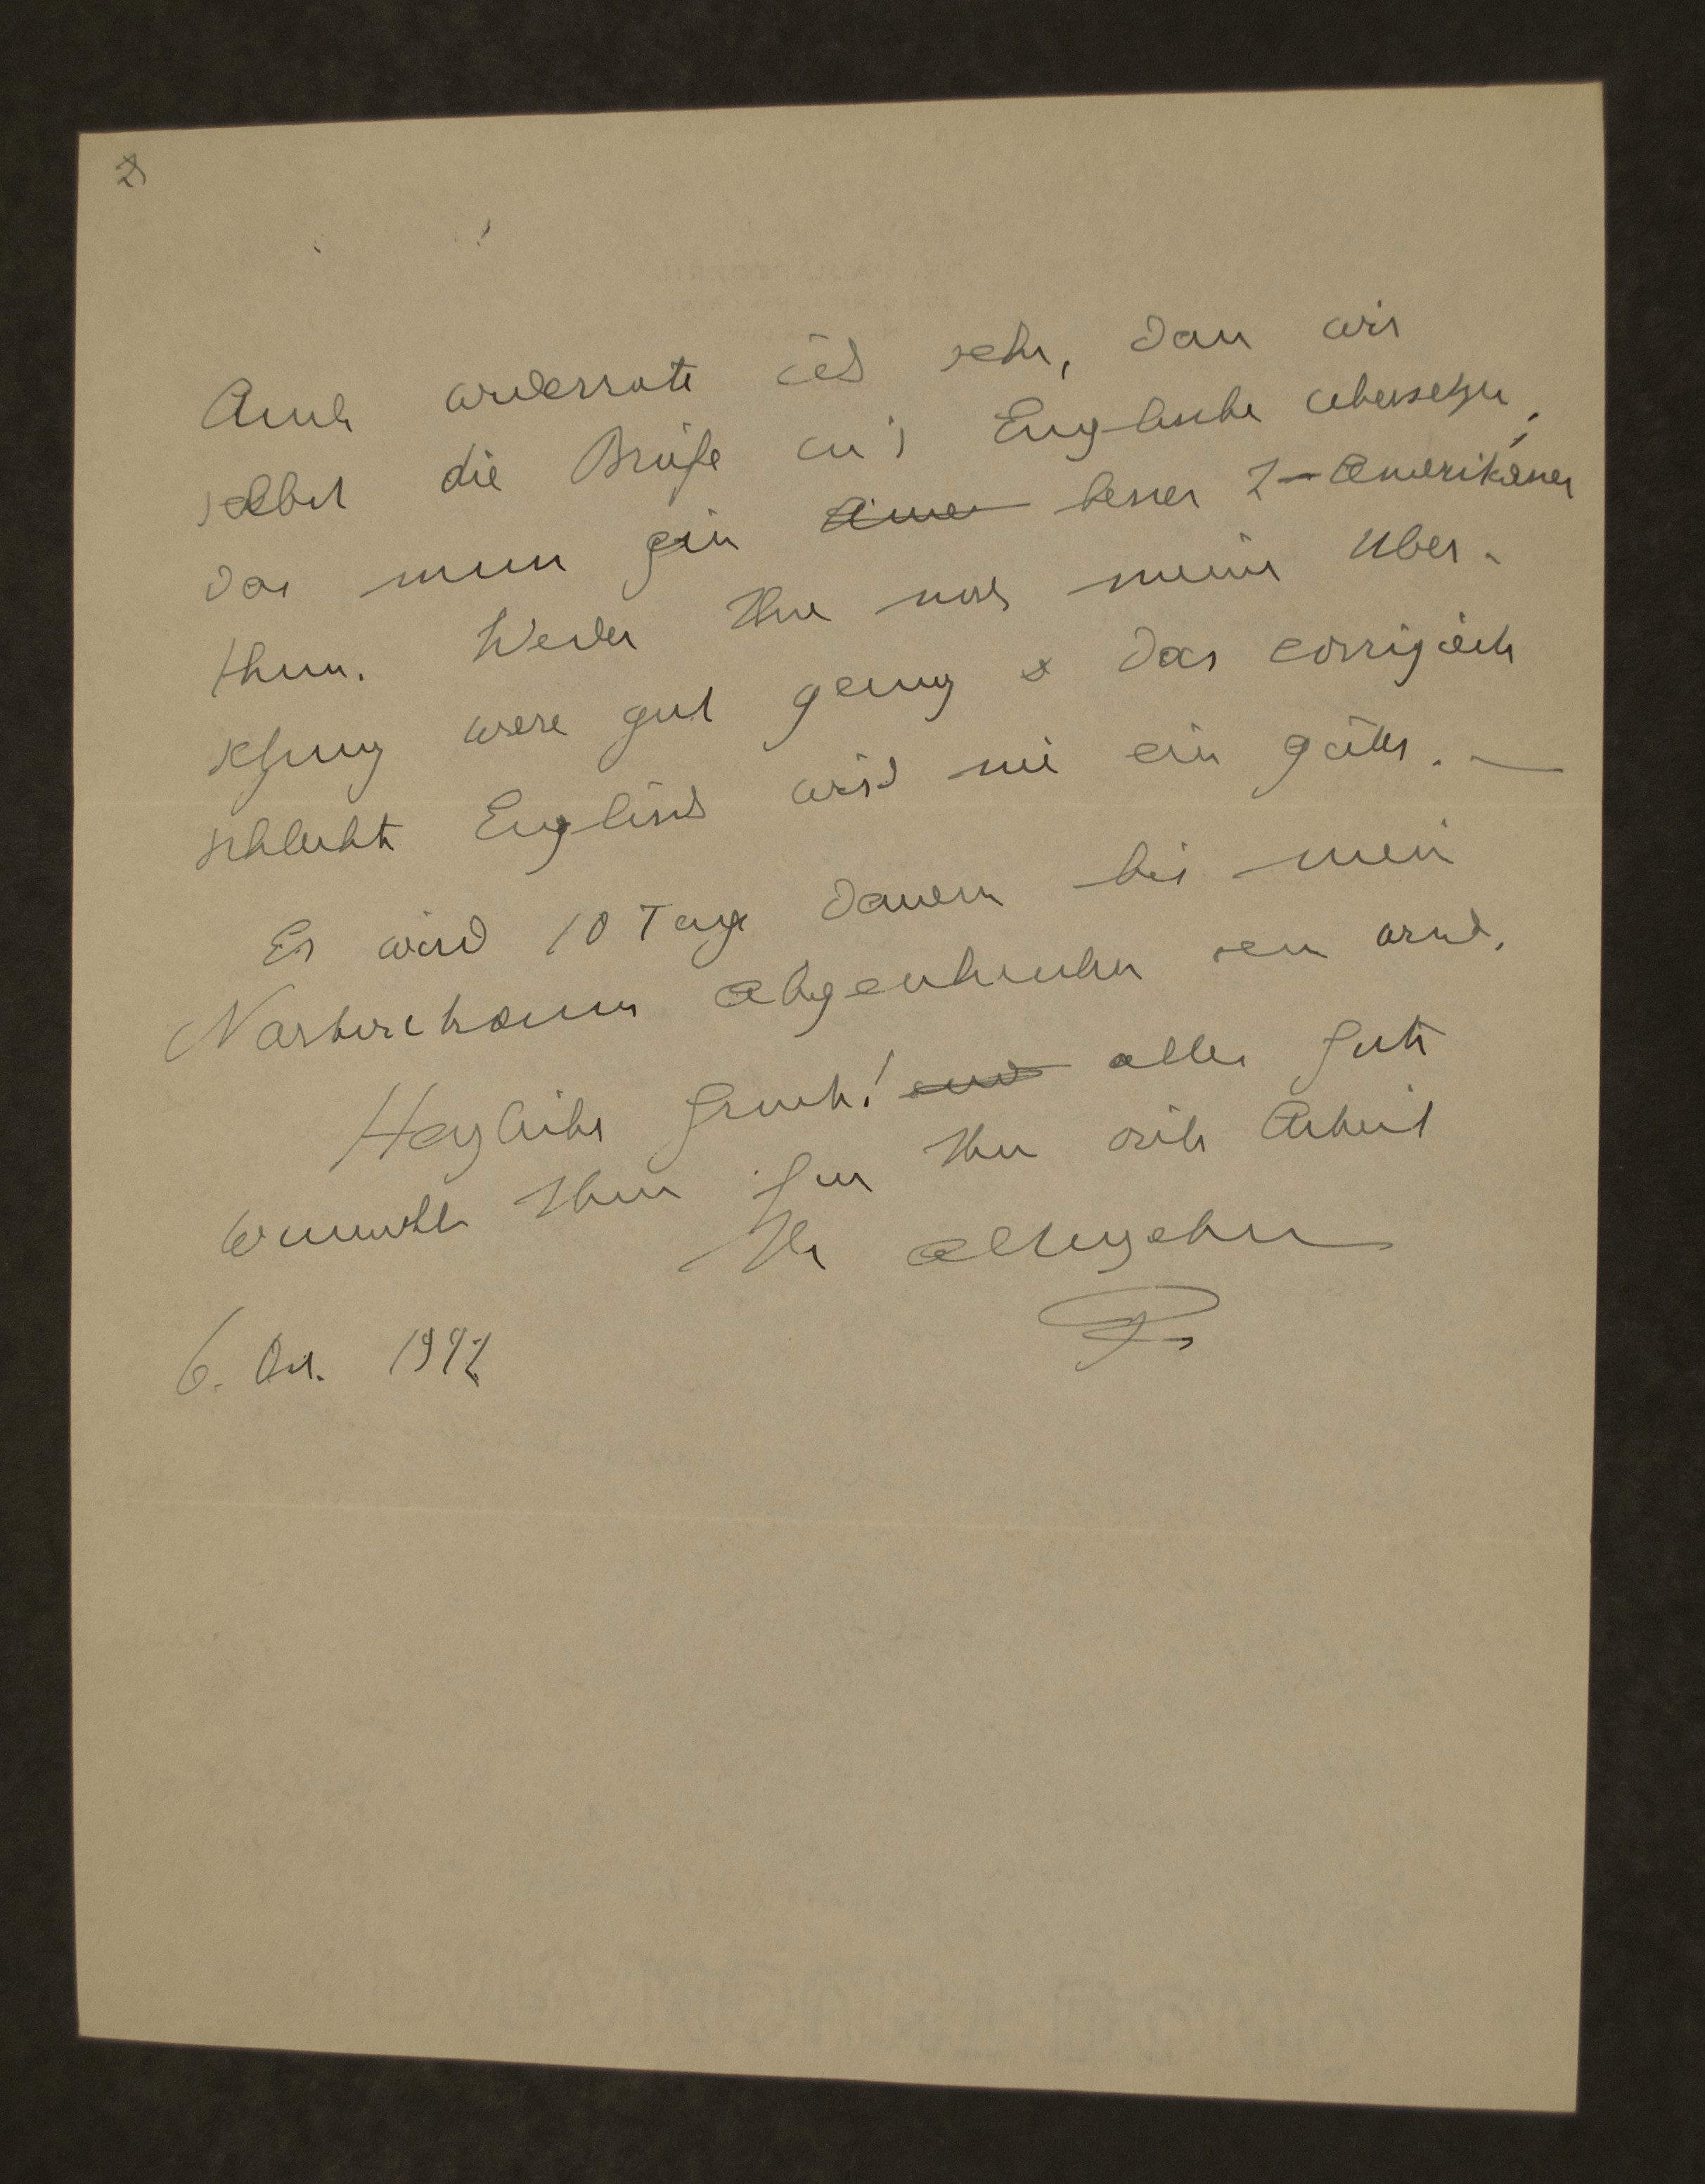 2)
Auch widerrate ich sehr, dass wir
selbst die Briefe in's Englische übersetzen,
das muss ein besser Amerikaner
thun. Weder Ihre noch meine Über-
setzung wäre gut genug & das corrigierte
schlechte Englisch wird nie ein gutes. —
Es wird 10 Tage dauern bis mein
abgeschrieben sein wird.
Herzliche Grüsse! und alles Gute
wünscht Ihnen für Ihre Arbeit
Ihr
6. Oct. 1942